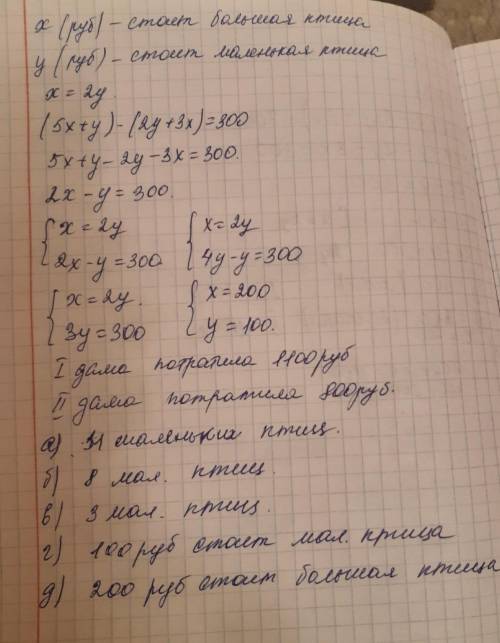 x (руб) – стоит большая птица
y (руб) – стоит маленькая птица
x = 2y.
(5x+y) – (2y+3x)=300
5x+y – 2y – 3x = 300.
2x – y = 300.
{ x = 2y { x = 2y
2x – y = 300 4y – y = 300
{ x = 2y. { x = 200
3y = 300 y = 100.
I дама потратила 1100руб
II дама потратила 800руб.
а) 11 маленьких птиц.
б) 8 мал. птиц
в) 3 мал. птиц.
г) 100 руб стоит мал. птица
д) 200 руб стоит большая птица